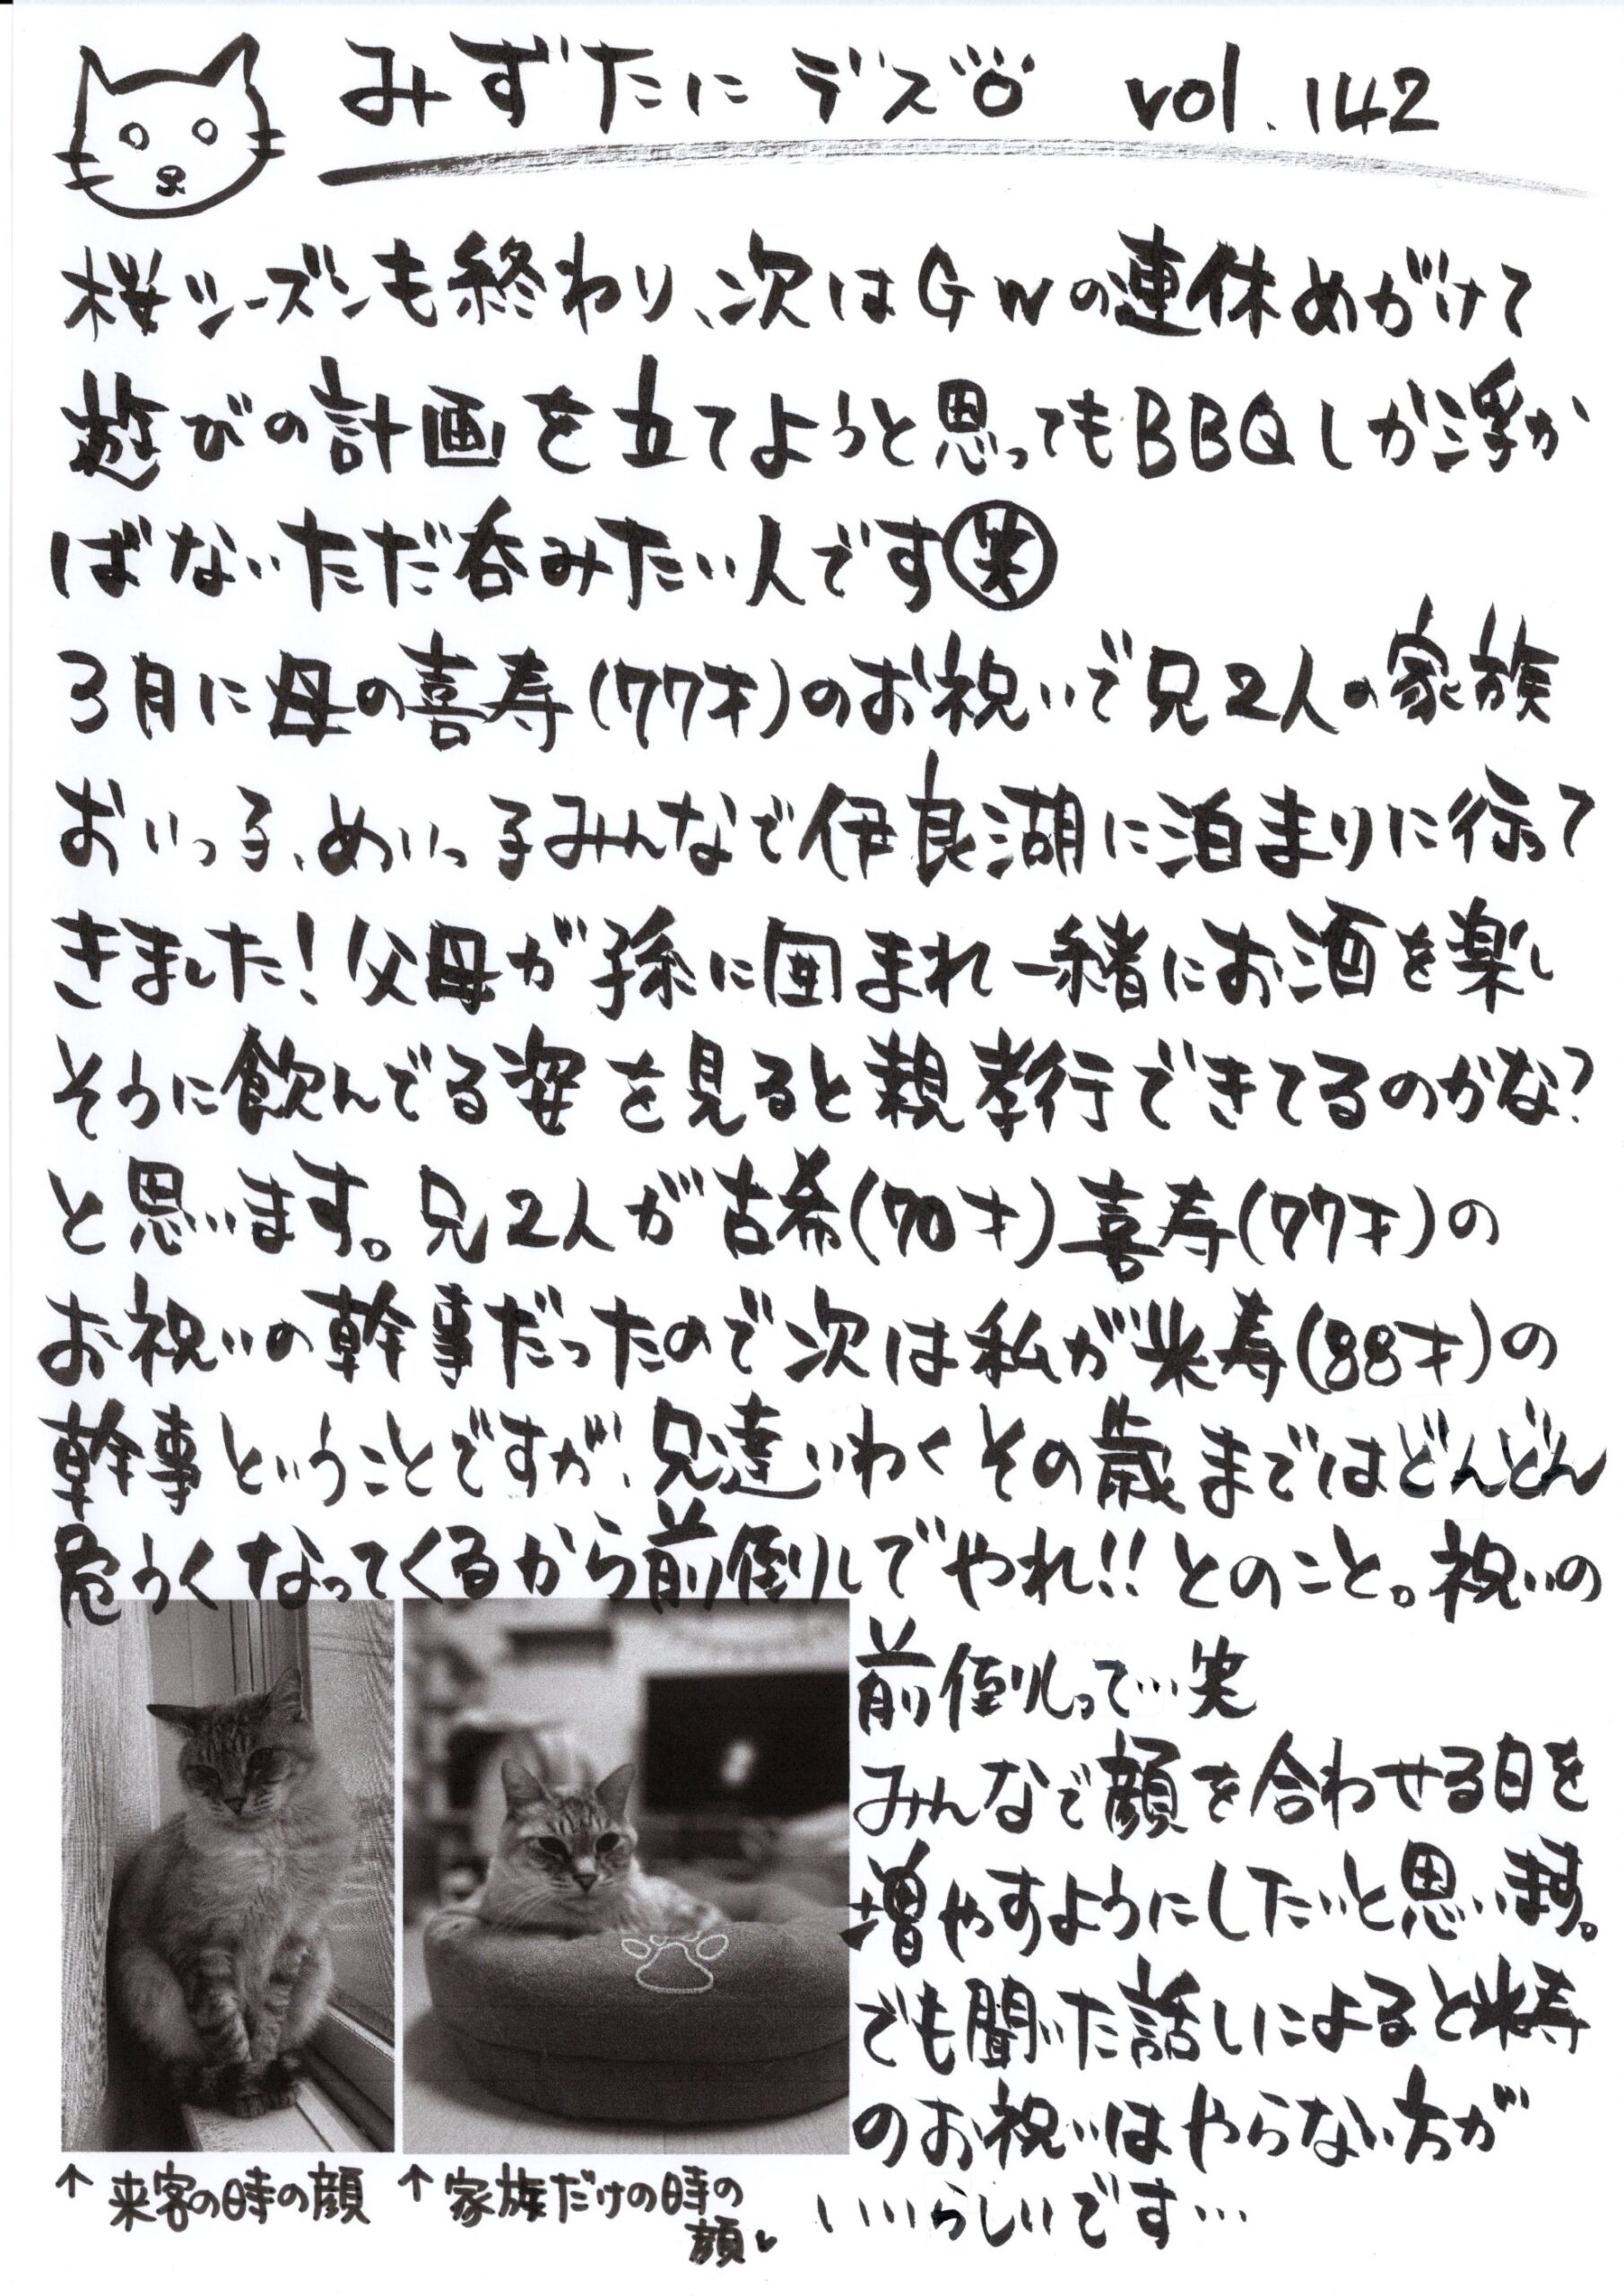 みずたにデス vol.142
桜シーズンも終わり、次はGWの連休めがけて
遊びの計画を立てようと思ってもBBQしか浮か
ばないただ呑みたい人です㊗笑
3月に母の喜寿(77才)のお祝いで兄2人の家族
おいっ子、めいっ子みんなで伊良湖に泊まりに行って
きました!父母が孫に囲まれ一緒にお酒を楽し
そうに飲んでる姿を見ると親孝行できてるのかな?
と思います。兄2人が古希(70才)喜寿(77才)の
お祝いの幹事だったので次は私が米寿(88才)の
幹事ということですが、兄達いわくその歳まではどんどん
危うくなってくるから前倒しでやれ!!とのこと。祝いの
前倒しって…笑
みんなで顔を合わせる日を
増やすようにしたいと思います。
でも聞いた話しによると米寿
のお祝いはやらない方が
いいらしいです…
↑来客の時の顔
↑家族だけの時の
顔♥